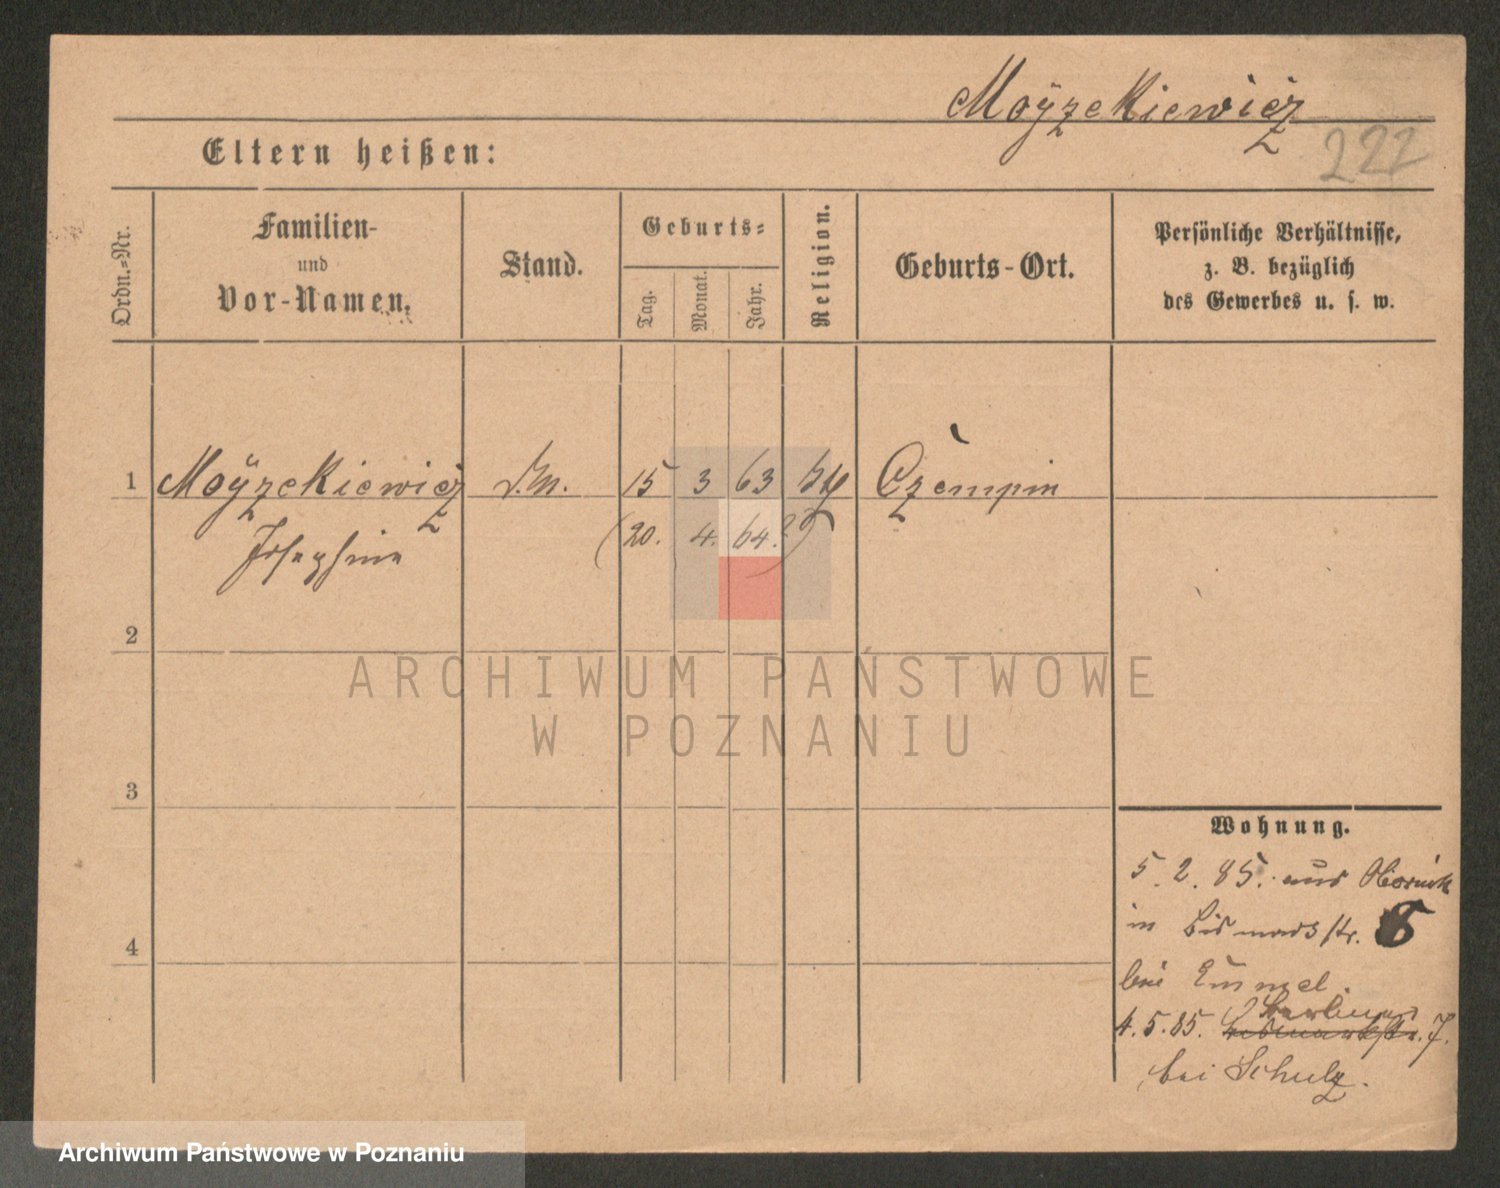 Moÿzekiewicz
222
Eltern heißen:
Ordn.-Nr.
Familien-
und
Vor-Namen.
Stand.
Geburts-
Tag.
Monat.
Jahr.
Religion.
Geburts-Ort.
Persönliche Verhältnisse,
z. B. bezüglich
des Gewerbes u. s. w.
1 Moÿzekiewicz 15 3 63 Czempin
Josephine (20. 4. 64.?)
2
3
4
Wohnung.
5. 2. 85. aus
in Bismarckstr. 6
bei
4. 5. 85. Berliner Bismarckstr. 7.
bei Schulz.
ARCHIWUM PAŃSTWOWE
W POZNANIU
Archiwum Państwowe w Poznaniu